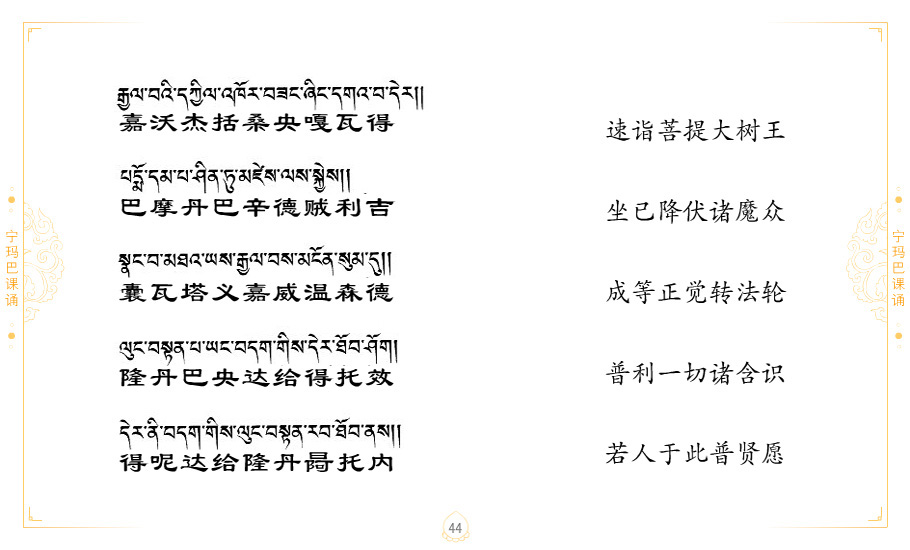 རྒྱལ་བའི་དཀྱིལ་འཁོར་བཟང་ཞིང་དགའ་བ་དེར།།
嘉沃杰括桑央嘎瓦得
速诣菩提大树王
པདྨོ་དམ་པ་ཤིན་ཏུ་མཛེས་ལས་སྐྱེས།།
巴摩丹巴辛德贼利吉
坐已降伏诸魔众
སྣང་བ་མཐའ་ཡས་རྒྱལ་བས་མངོན་སུམ་དུ།།
囊瓦塔义嘉威温森德
成等正觉转法轮
ལུང་བསྟན་པ་ཡང་བདག་གིས་དེར་ཐོབ་ཤོག།
隆丹巴央达给得托效
普利一切诸含识
དེར་ནི་བདག་གིས་ལུང་བསྟན་རབ་ཐོབ་ནས།།
得呢达给隆丹冔托内
若人于此普贤愿
宁玛巴课诵
宁玛巴课诵
44